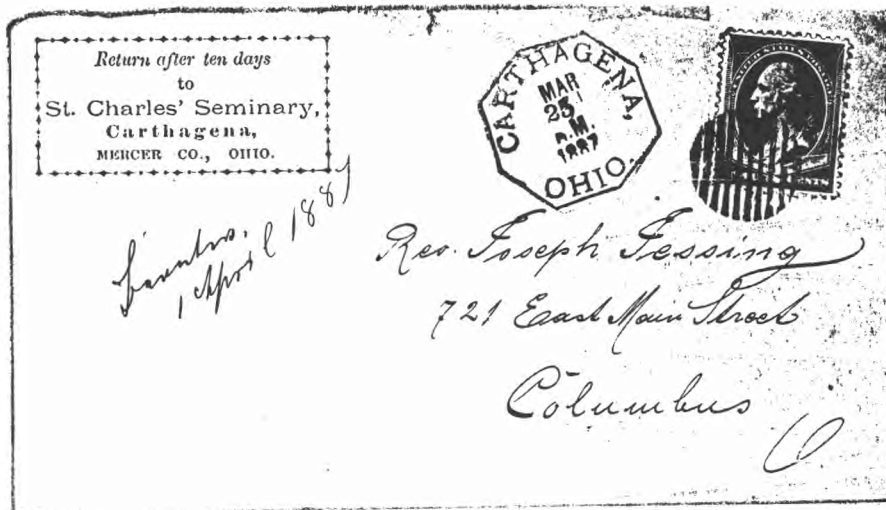 Return after ten days
to
St. Charles' Seminary,
Carthagena,
MERCER CO., OHIO.
CARTHAGENA,
MAR
23
P.M.
1887
OHIO.
UNITED STATES POSTAGE
CENTS
1 April 1887
Rev. Joseph Jessing
721 East Main Street
Columbus
O.